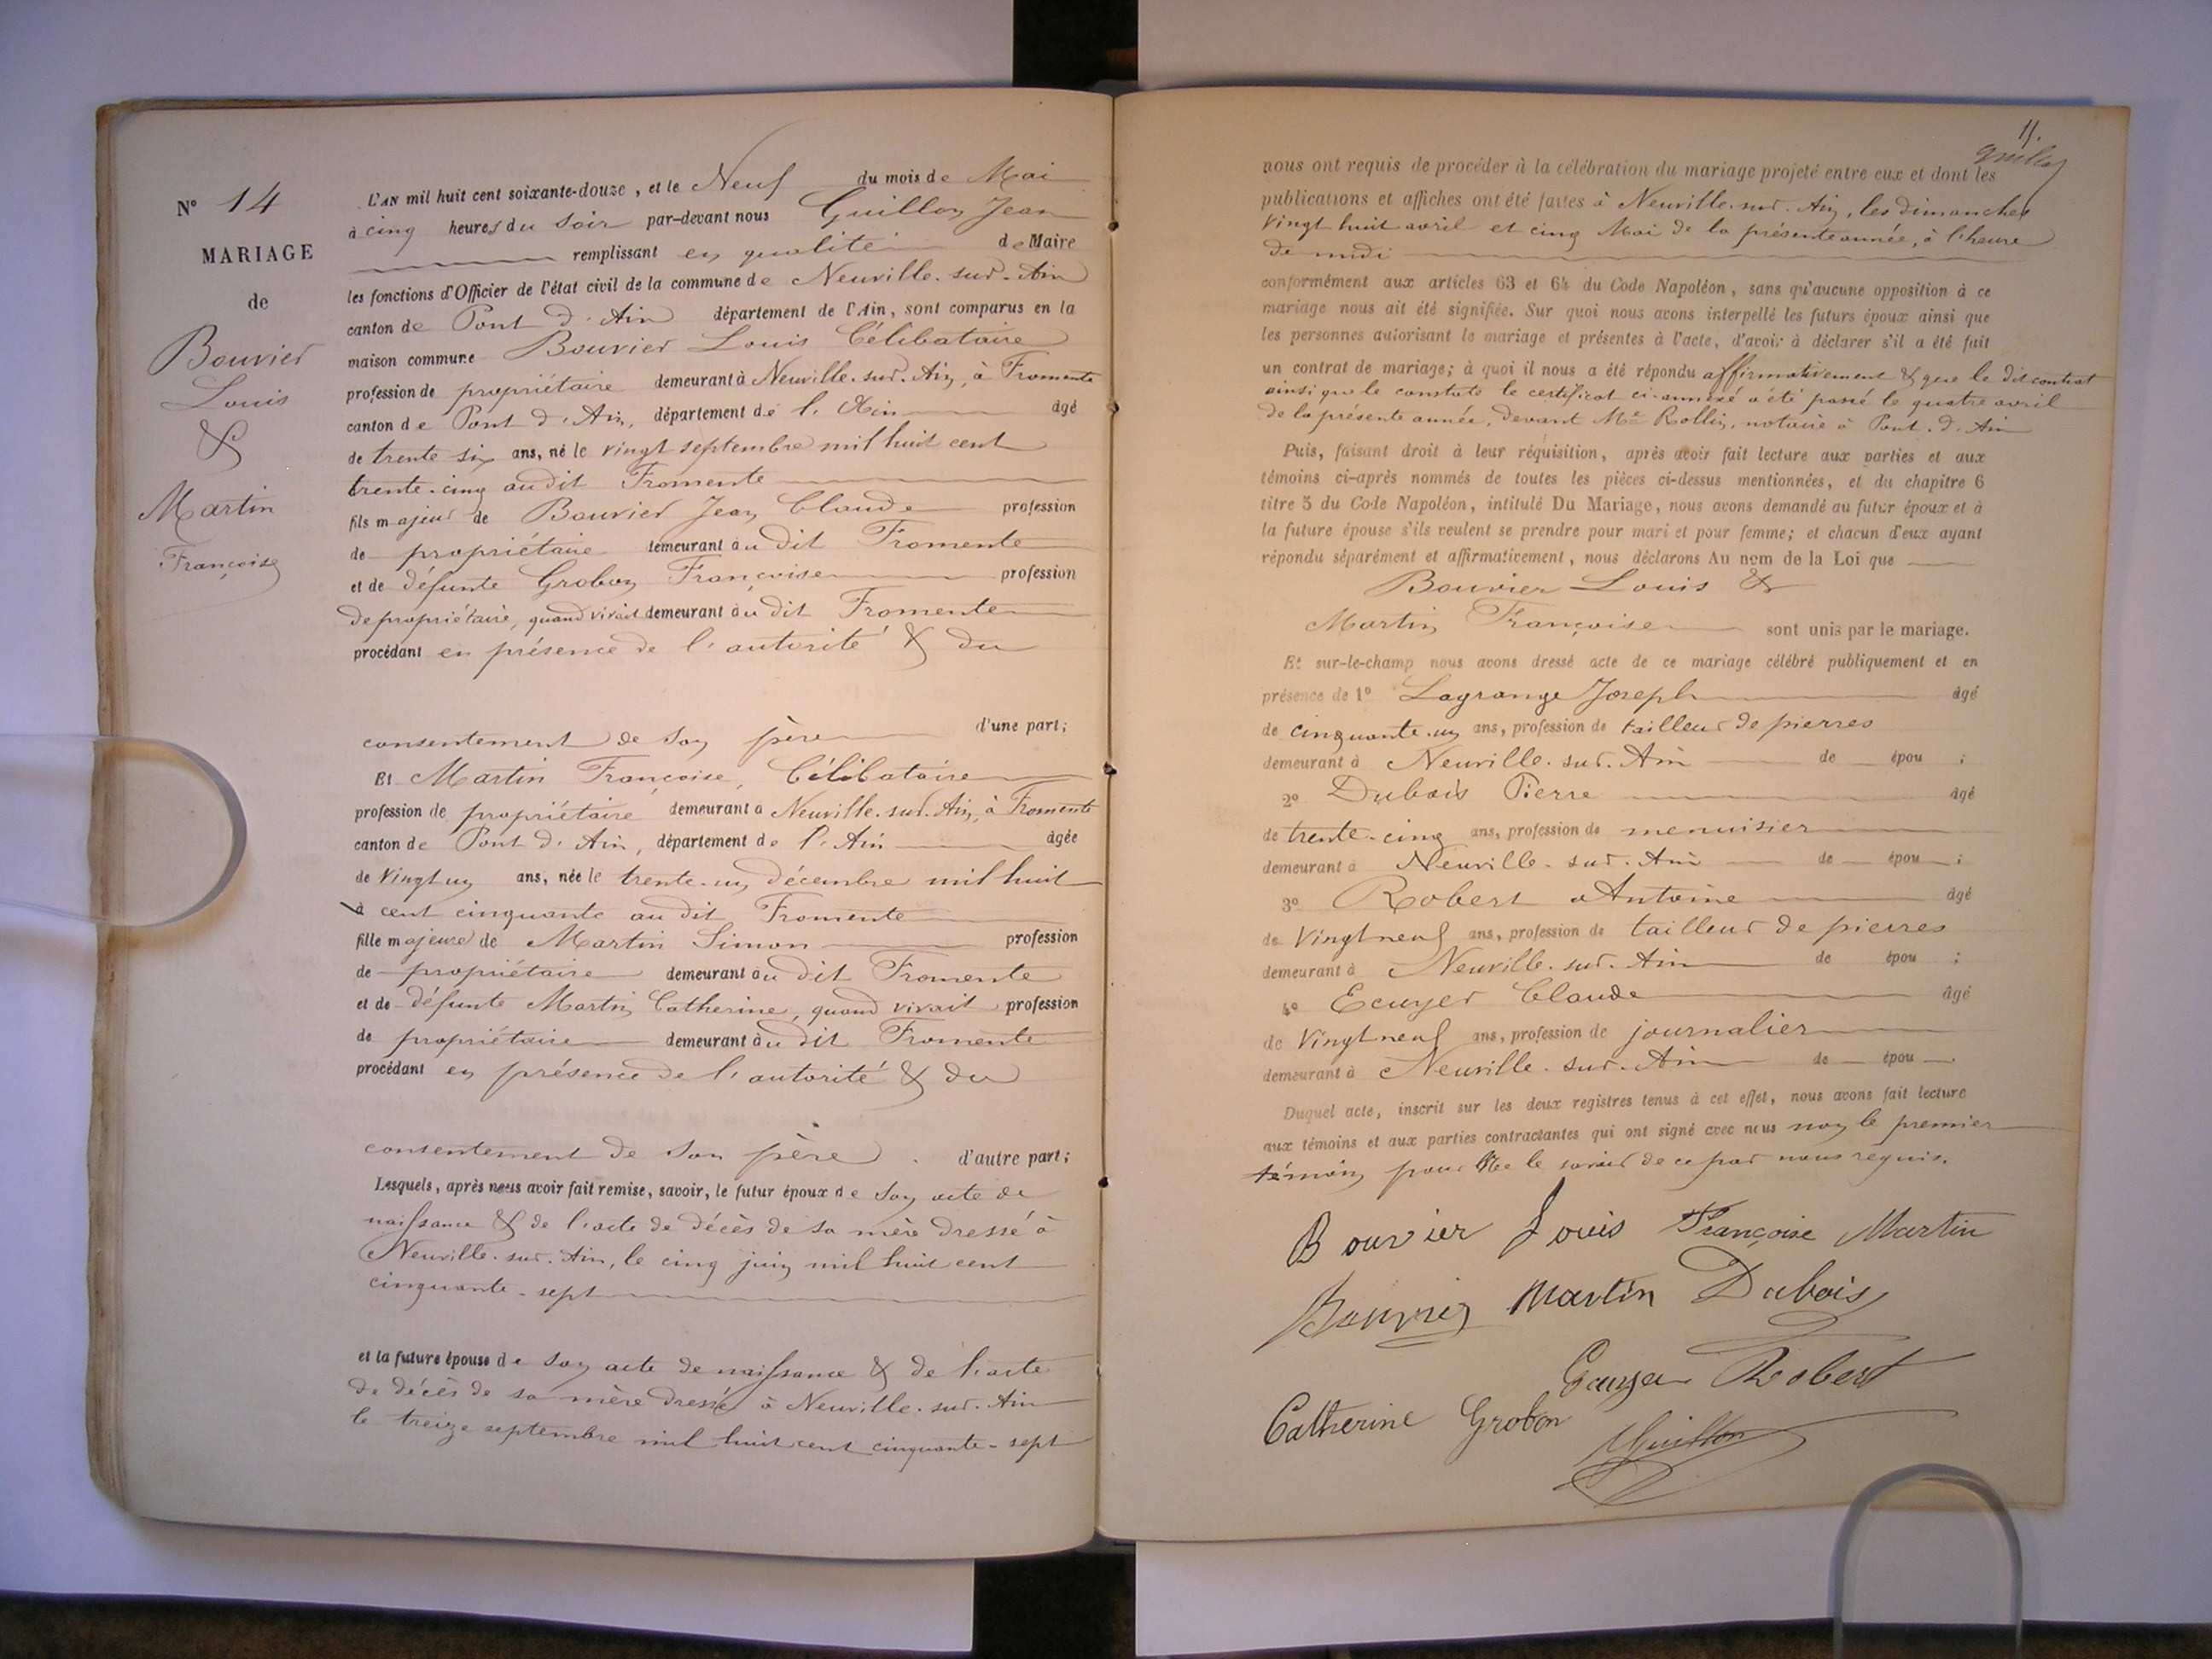 N° 14
MARIAGE
de
Bouvier
Louis
&
Martin
Françoise
L'AN mil huit cent soixante-douze, et le Neuf du mois de Mai
à cinq heures du Soir par-devant nous Guillon Jean
remplissant en qualité de Maire
les fonctions d'Officier de l'état civil de la commune de Neuville-sur-Ain
canton de Pont d'Ain département de l'Ain, sont comparus en la
maison commune Bouvier Louis Célibataire
profession de propriétaire demeurant à Neuville-sur-Ain, à Fromente
canton de Pont d'Ain, département de l'Ain âgé
de trente six ans, né le vingt septembre mil huit cent
trente-cinq audit Fromente
fils majeur de Bouvier Jean Claude profession
de propriétaire demeurant au dit Fromente
et de défunte Grobon Françoise profession
de propriétaire, quand vivait demeurant au dit Fromente
procédant en présence de l'autorité & du
consentement de son père d'une part;
Et Martin Françoise, Célibataire
profession de propriétaire demeurant à Neuville-sur-Ain, à Fromente
canton de Pont d'Ain, département de l'Ain âgée
de vingt un ans, née le trente-un décembre mil huit
à cent cinquante au dit Fromente
fille majeure de Martin Simon profession
de propriétaire demeurant au dit Fromente
et de défunte Martin Catherine, quand vivait profession
de propriétaire demeurant au dit Fromente
procédant en présence de l'autorité & du
consentement de son père. d'autre part;
Lesquels, après nous avoir fait remise, savoir, le futur époux de son acte de
naissance & de l'acte de décès de sa mère dressé à
Neuville-sur-Ain, le cinq juin mil huit cent
cinquante-sept
et la future épouse de son acte de naissance & de l'acte
de décès de sa mère dressé à Neuville-sur-Ain
le treize septembre mil huit cent cinquante-sept
11.
Guillon
nous ont requis de procéder à la célébration du mariage projeté entre eux et dont les
publications et affiches ont été faites à Neuville-sur-Ain, les dimanches
vingt huit avril et cinq Mai de la présente année, à l'heure
de midi
conformément aux articles 63 et 64 du Code Napoléon, sans qu'aucune opposition à ce
mariage nous ait été signifiée. Sur quoi nous avons interpellé les futurs époux ainsi que
les personnes autorisant le mariage et présentes à l'acte, d'avoir à déclarer s'il a été fait
un contrat de mariage; à quoi il nous a été répondu affirmativement & que le dit contrat
ainsi que le constate le certificat ci-annexé a été passé le quatre avril
de la présente année, devant Me Rollin, notaire à Pont-d'Ain
Puis, faisant droit à leur réquisition, après avoir fait lecture aux parties et aux
témoins ci-après nommés de toutes les pièces ci-dessus mentionnées, et du chapitre 6
titre 5 du Code Napoléon, intitulé Du Mariage, nous avons demandé au futur époux et à
la future épouse s'ils veulent se prendre pour mari et pour femme; et chacun d'eux ayant
répondu séparément et affirmativement, nous déclarons Au nom de la Loi que
Bouvier Louis &
Martin Françoise sont unis par le mariage.
Et sur-le-champ nous avons dressé acte de ce mariage célébré publiquement et en
présence de 1° Lagrange Joseph âgé
de cinquante-un ans, profession de tailleur de pierres
demeurant à Neuville-sur-Ain de épou ;
2° Dubois Pierre âgé
de trente-cinq ans, profession de menuisier
demeurant à Neuville-sur-Ain de épou ;
3° Robert Antoine âgé
de vingt neuf ans, profession de tailleur de pierres
demeurant à Neuville-sur-Ain de épou ;
4° Ecuyer Claude âgé
de vingt neuf ans, profession de journalier
demeurant à Neuville-sur-Ain de épou .
Duquel acte, inscrit sur les deux registres tenus à cet effet, nous avons fait lecture
aux témoins et aux parties contractantes qui ont signé avec nous non le premier
témoin pour ne le savoir de ce par nous requis.
Bouvier Louis Françoise Martin
Bouvier Martin Dubois
Ecuyer Robert
Catherine Grobon
Guillon